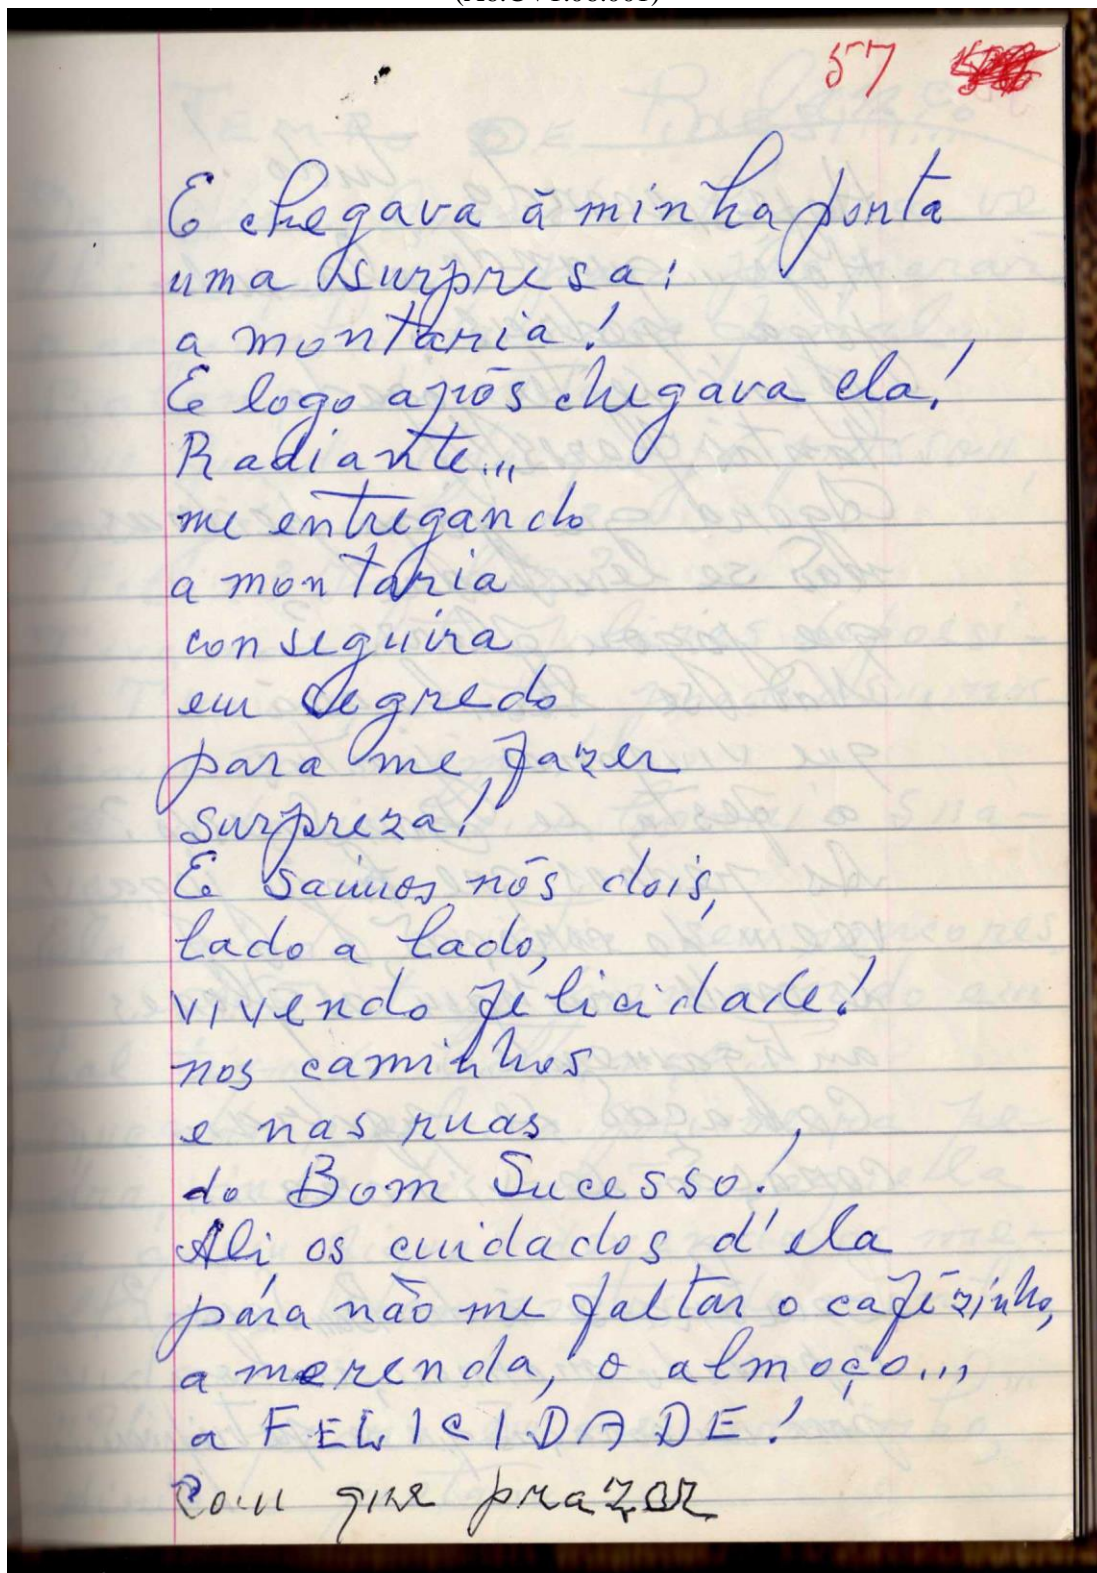 57
E chegava à minha porta
uma surpresa:
a montaria!
E logo após chegava ela!
Radiante...
me entregando
a montaria
conseguira
em segredo
para me fazer
surpreza!
E saímos nós dois,
lado a lado,
vivendo felicidade!
nos caminhos
e nas ruas
do Bom Sucesso!
Ali os cuidados d'ela
pára não me faltar o cafézinho,
a merenda, o almoço...
a FELICIDADE!
Com que prazer